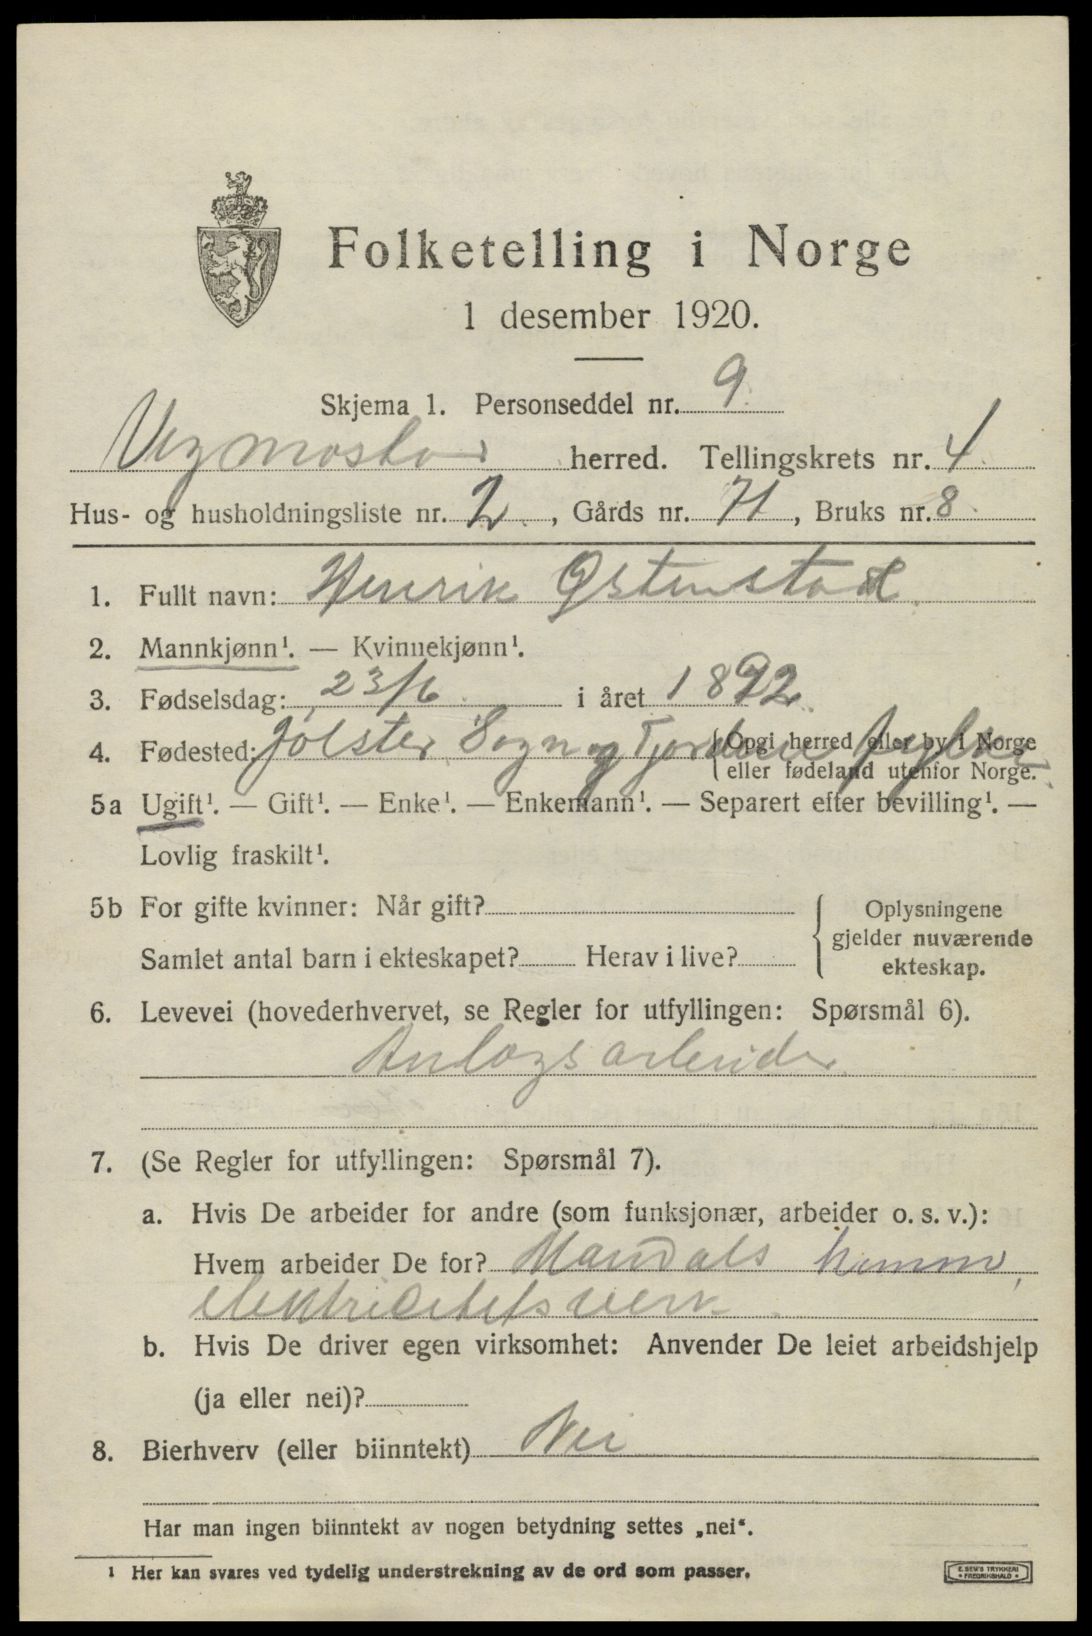 Folketelling i Norge
1 desember 1920.
Skjema 1. Personseddel nr. 9
herred. Tellingskrets nr. 4
Hus- og husholdningsliste nr. 2, Gårds nr. 71, Bruks nr. 8
1. Fullt navn: Henrik Østenstad
2. Mannkjønn¹. — Kvinnekjønn¹.
3. Fødselsdag: 23/6 i året 1892
4. Fødested: Jølster Sogn og Fjordane fylke {Opgi herred eller by i Norge
eller fødeland utenfor Norge.
5a Ugift¹. — Gift¹. — Enke¹. — Enkemann¹. — Separert efter bevilling¹. —
Lovlig fraskilt¹.
5b For gifte kvinner: Når gift? { Oplysningene
gjelder nuværende
Samlet antal barn i ekteskapet? Herav i live? ekteskap.
6. Levevei (hovederhvervet, se Regler for utfyllingen: Spørsmål 6).
Anlægsarbeider
7. (Se Regler for utfyllingen: Spørsmål 7).
a. Hvis De arbeider for andre (som funksjonær, arbeider o. s. v.):
Hvem arbeider De for? Mandals komm,
elektricitetsverk
b. Hvis De driver egen virksomhet: Anvender De leiet arbeidshjelp
(ja eller nei)?
8. Bierhverv (eller biinntekt) Nei
Har man ingen biinntekt av nogen betydning settes „nei“.
¹ Her kan svares ved tydelig understrekning av de ord som passer.
E. SEM'S TRYKKERI
• FREDRIKSHALD •